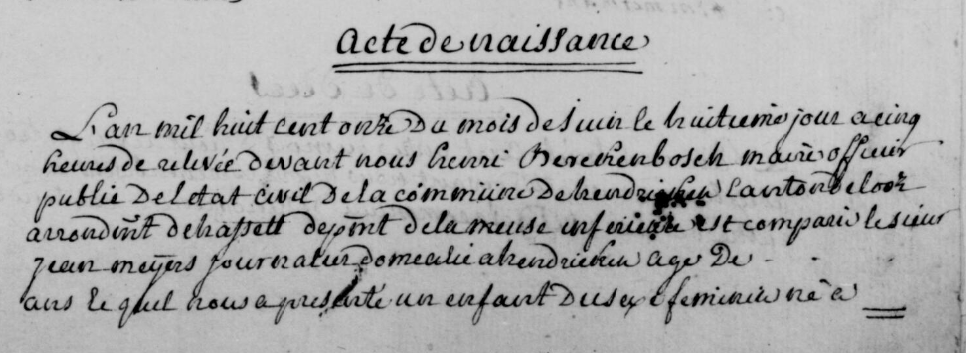 Acte de naissance
L'an mil huit cent onze du mois de Juin le huitieme jour a cinq
heures de relevée devant nous henri Berckenbosch maire officier
public de l'etat civil de la commune de hendrieken Canton de looz
arrondint de hasselt depmt de la meuse inferieure est comparu le sieur
jean meÿers journalier domcalie a hendrieken age De
ans le quel nous a presente un enfant du sexe feminin né a